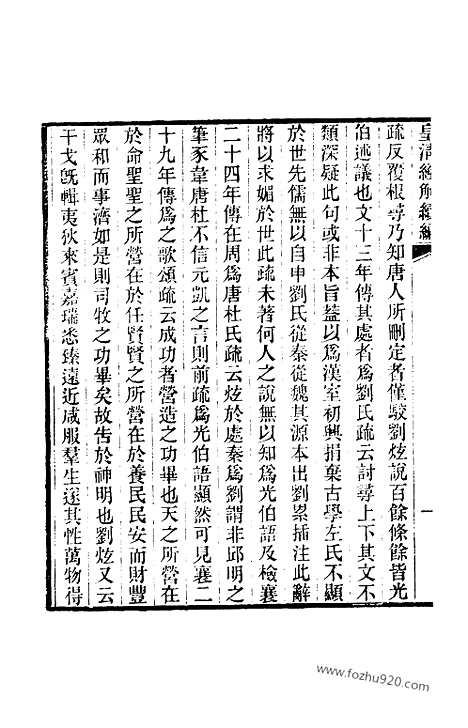 皇清經解續編
一
疏反覆根尋乃知唐人所刪定者僅駮劉炫說百餘條餘皆光
伯述議也文十三年傳其處者爲劉氏疏云討尋上下其文不
類深疑此句或非本旨葢以爲漢室初興捐棄古學左氏不顯
於世先儒無以自申劉氏從秦從魏其源本出劉累插注此辭
將以求媚於世此疏未著何人之說無以知爲光伯語及檢襄
二十四年傳在周爲唐杜氏疏云炫於處秦爲劉謂非邱明之
筆豕韋唐杜不信元凱之言則前疏爲光伯語顯然可見襄二
十九年傳爲之歌頌疏云成功者營造之功畢也天之所營在
於命聖聖之所營在於任賢賢之所營在於養民民安而財豐
眾和而事濟如是則司牧之功畢矣故告於神明也劉炫又云
干戈旣輯夷狄來賓嘉瑞悉臻遠近咸服羣生遂其性萬物得
www.fozhu920.com